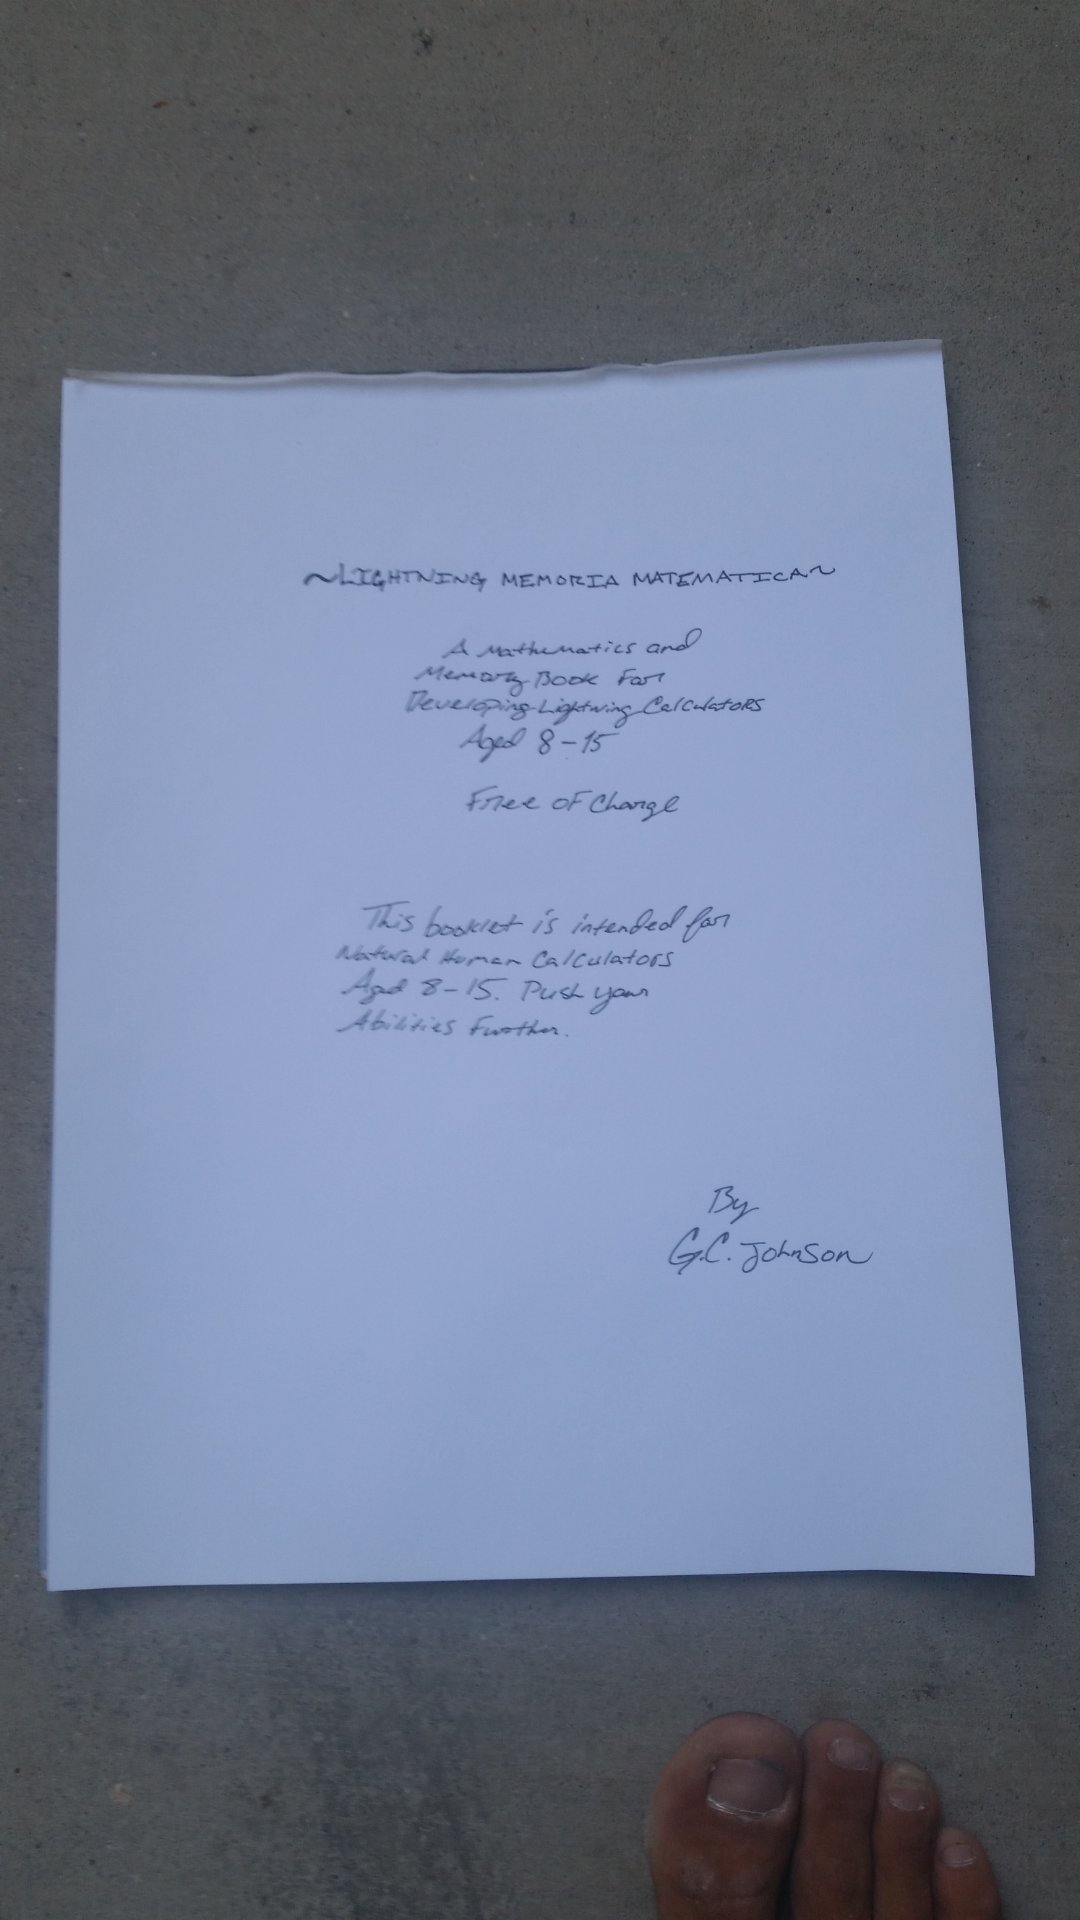 ~LIGHTNING MEMORIA MATEMATICA~
A Mathematics and
Memory Book For
Developing Lightning Calculators
Aged 8-15
Free of Charge
This booklet is intended for
Natural Human Calculators
Aged 8-15. Push your
Abilities Further.
By
G.C. Johnson